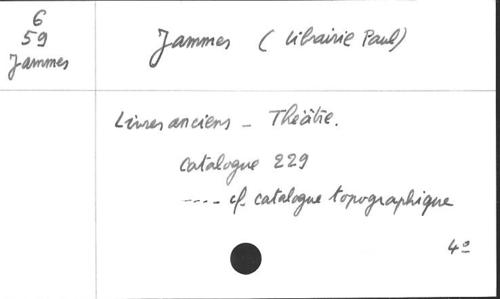 6
59
Jammes
Jammes (Librairie Paul)
Livres anciens - Théâtre.
Catalogue 229
---- cf. catalogue topographique
4º